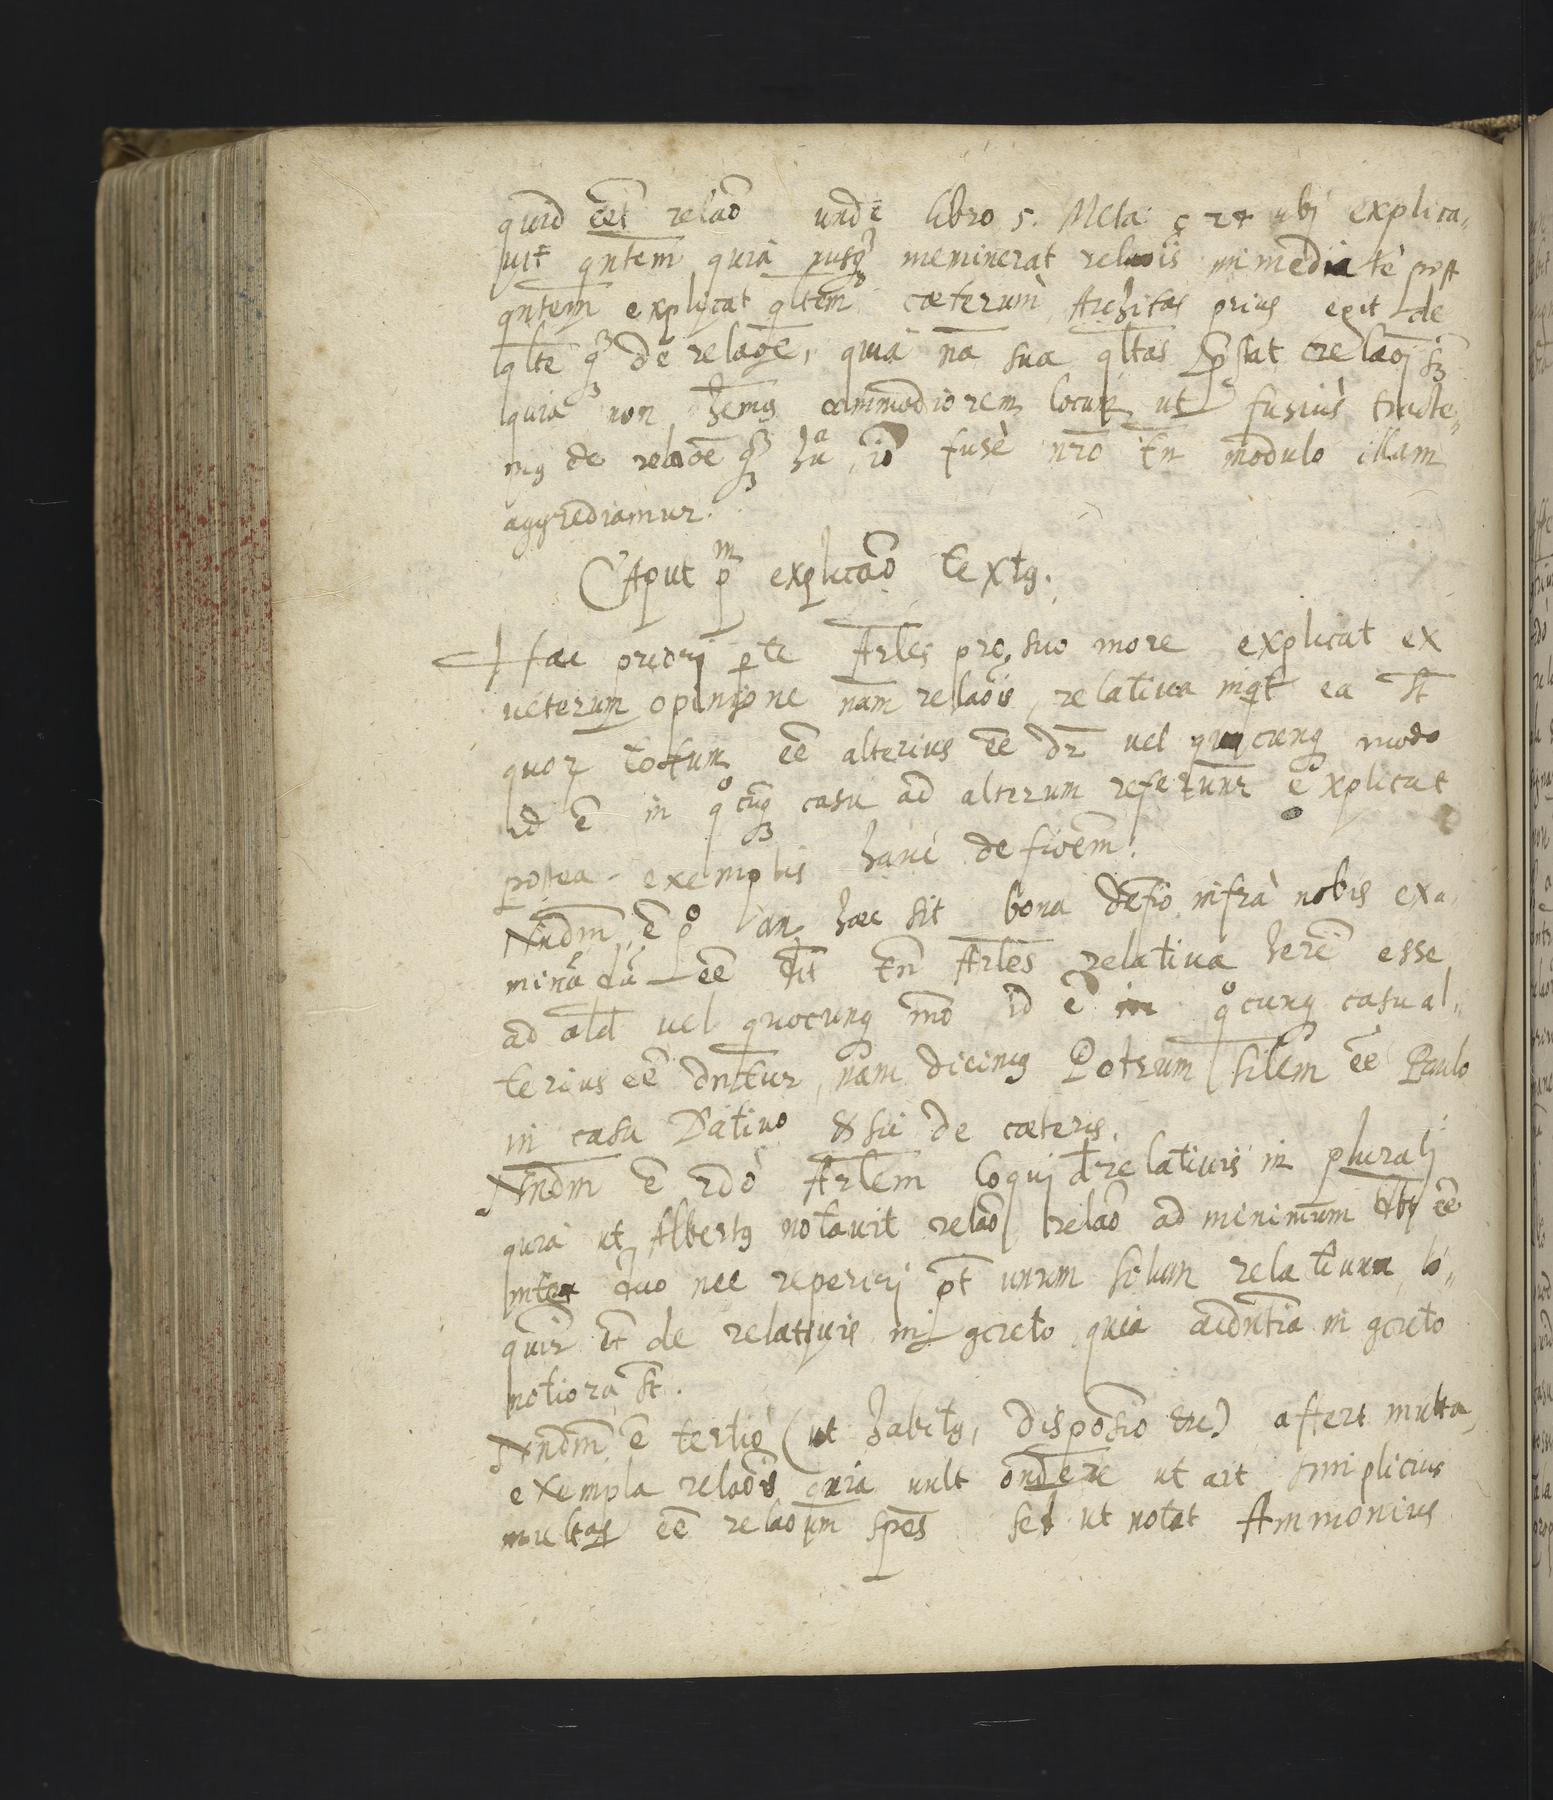 quid eēt relaō unde libro 5. Meta: c 24 ubi explica„
uit qntem quia meminerat relaōis immediatè post
qntem explicat qltem cæterum Architas prius egit de
qlte de relaōe, quia nā sua qltas pstat relaōi
quia non hēmus commodiorem locum ut fusiùs tracte„
mus de relaōe iō fusè nrō tn modulo illam
aggrediamur.
Caput pm explicaō textus.
Hac priori pte Arles pro suo more explicat ex
ueterum opinione nam relaōis, relatiua inqt ea st
quoꝝ totum eē alterius eē dr uel quicunq modo
id ē in qocunq casu ad alterum referunr explicat
postea exemplis hanc defiōem.
Nndm ē po an hæc sit bona defiō infrà nobis exa„
minādū eē dit tn Arles relatiua herē esse
ad ald uel quocunq mō id ē qocunq casu al„
terius eē dntur, nam dicimus Petrum silem eē Paulo
in casu Datiuo & sic de cæteris.
Nndm ē 2dō Arlem loqui d relatiuis in plurali
quia ut Albertus notauit relaō relaō ad minimum eē
inter duo nec reperiri pt unum solum relatiuum lo„
quir et de relatiuis in gcreto quia acidntia in gcreto
notiora st.
Nndm ē tertiò (ut habitus, disposiō &c) affert multa
exempla relaōis quia uult ondere ut ait Simplicius
multas eē relaōum spēs sed ut notat Ammonius